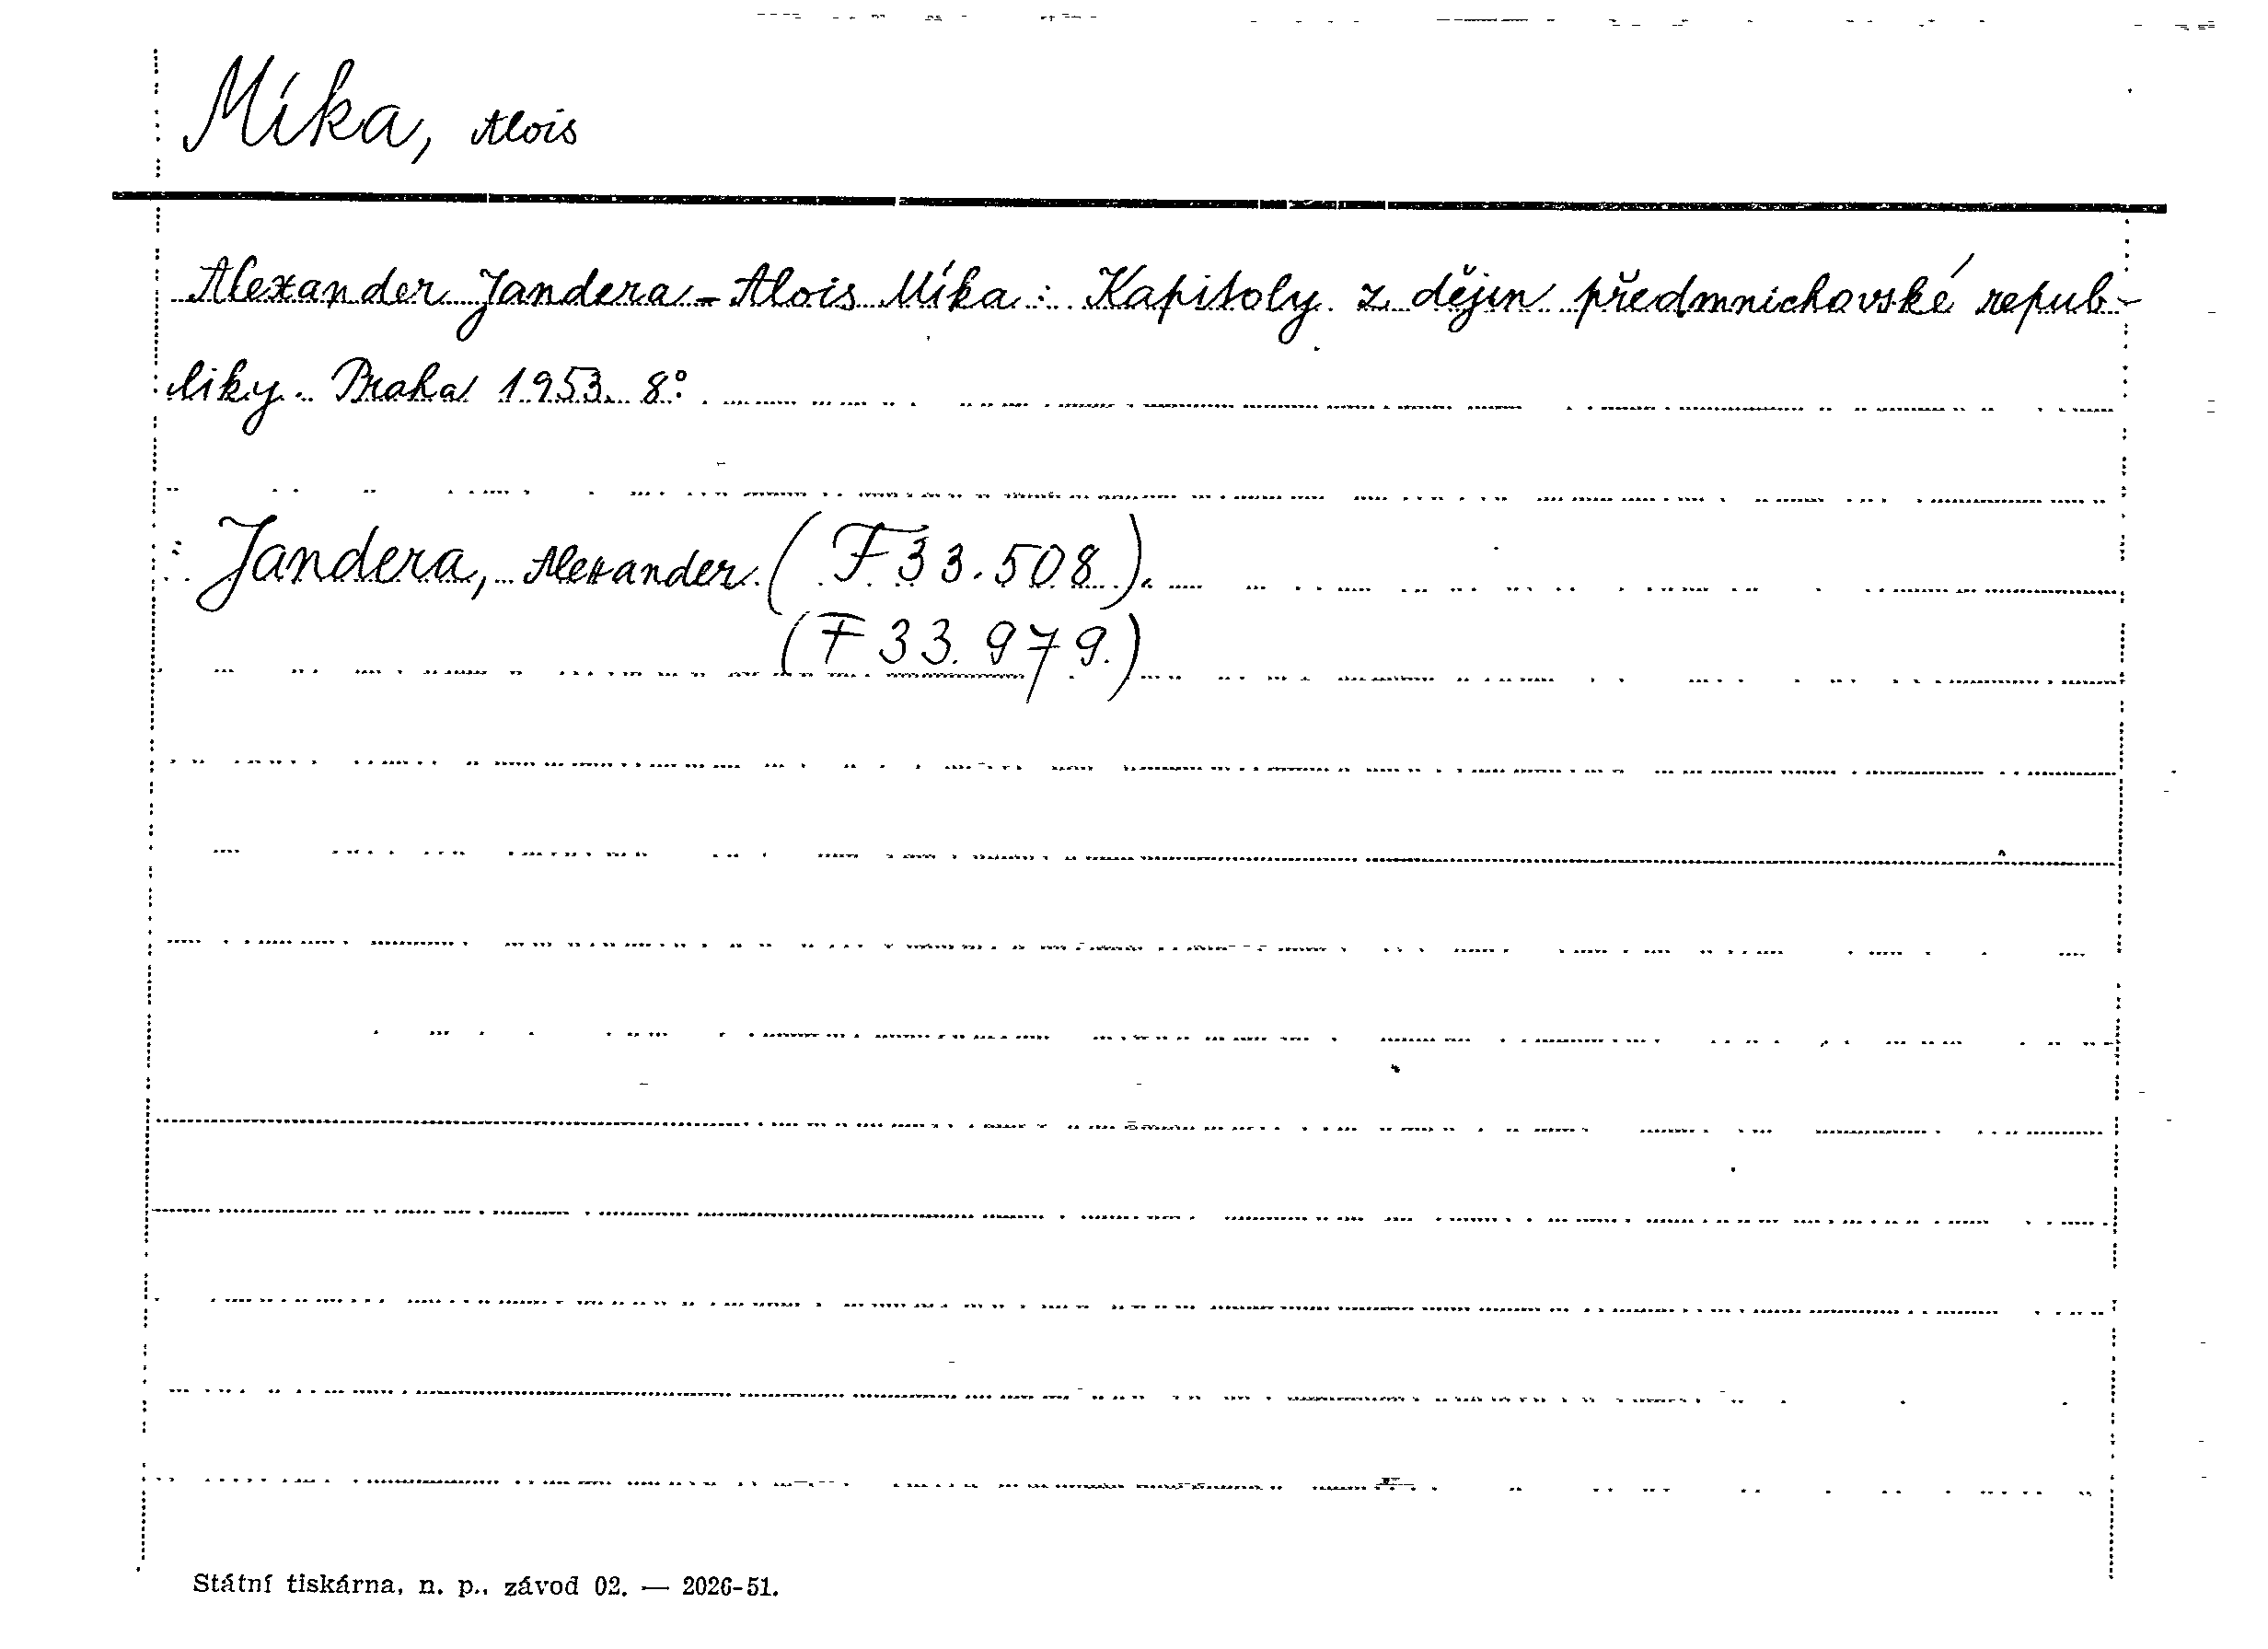 Míka, Alois
Alexander Jandera - Alois Míka: Kapitoly z dějin předmnichovské repub-
liky. Praha 1953. 8°.
: Jandera, Alexander. (F 33.508).
(F 33.979.)
Státní tiskárna, n. p., závod 02. — 2026-51.